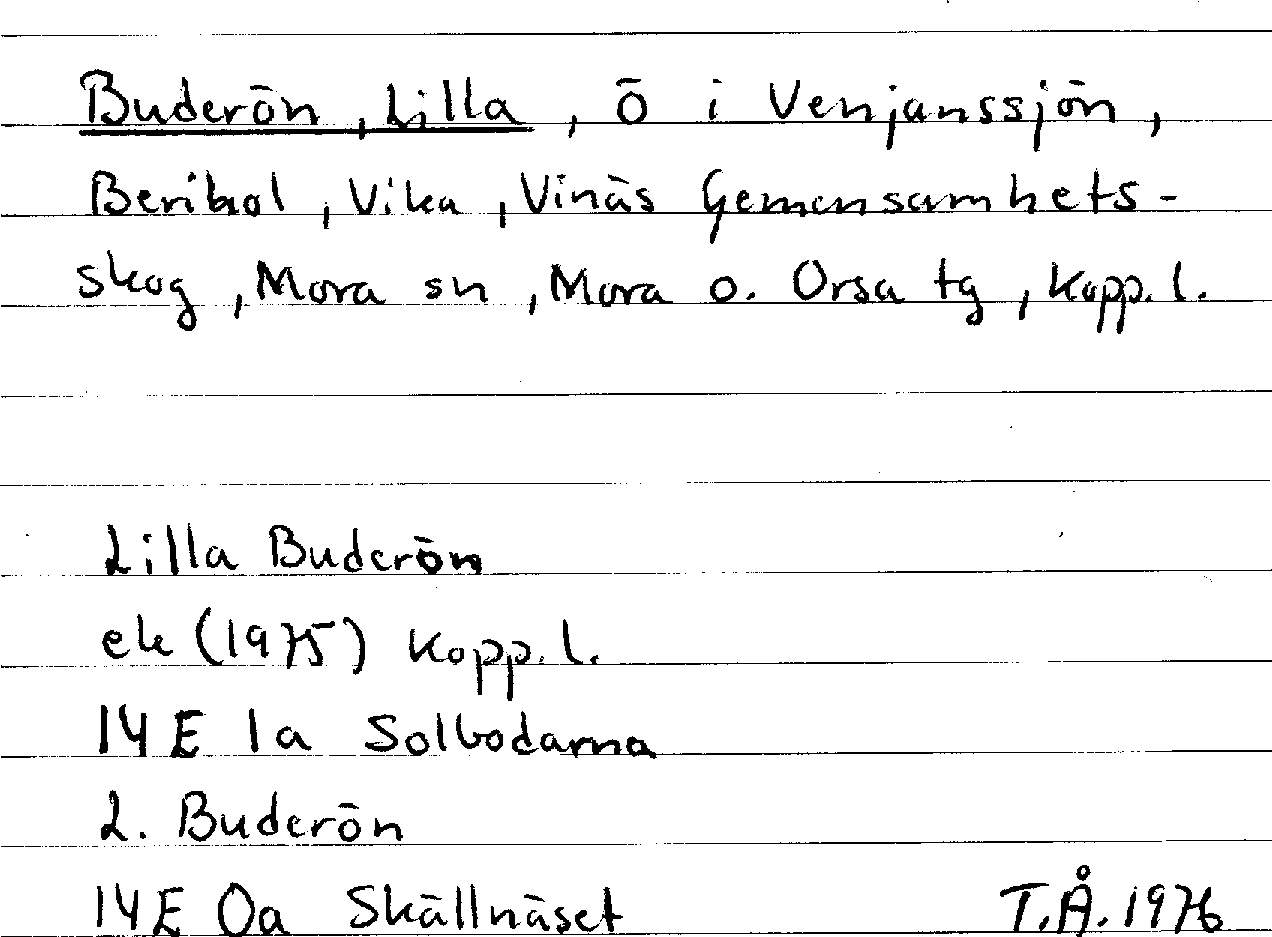 Buderön, Lilla, ö i Venjanssjön,
Vika, Vinäs Gemensamhets-
skog, Mora sn, Mora o. Orsa tg, Kopp. l.
Lilla Buderön
ek (1975) Kopp. l.
14 E 1a Solbodarna
L. Buderön
14E 0a Skällnäset T.Å. 1976